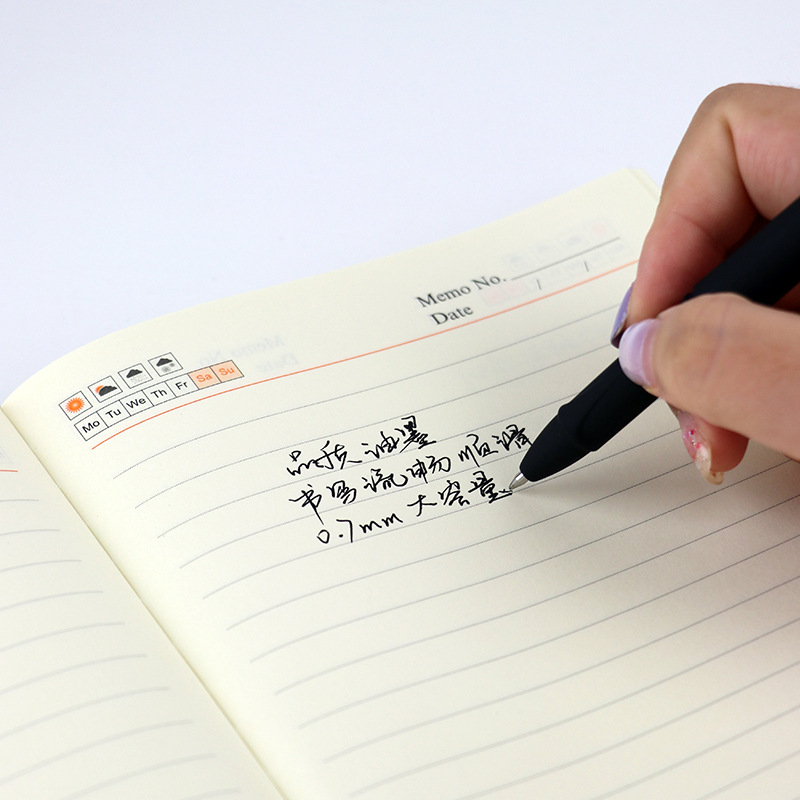 Memo No.
Date / /
Mo Tu We Th Fr Sa Su
品质油墨
书写流畅顺滑
0.7mm 大容量